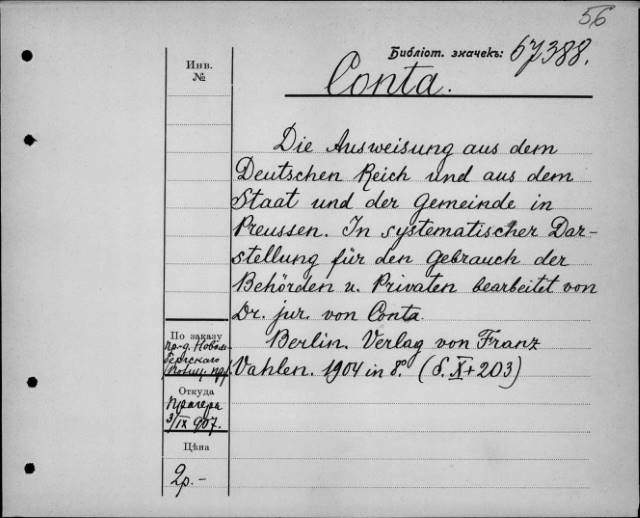 56
Библіот. значекъ: 67388.
Инв.
№
Conta.
Die Ausweisung aus dem
Deutschen Reich und aus dem
Staat und der Gemeinde in
Preussen. In systematischer Dar-
stellung für den Gebrauch der
Behörden u. Privaten bearbeitet von
Dr. jur. von Conta.
Berlin. Verlag von Franz
Vahlen. 1904 in 8º. (S. X+203)
По заказу
Откуда
3/IX 907.
Цѣна
2р.-